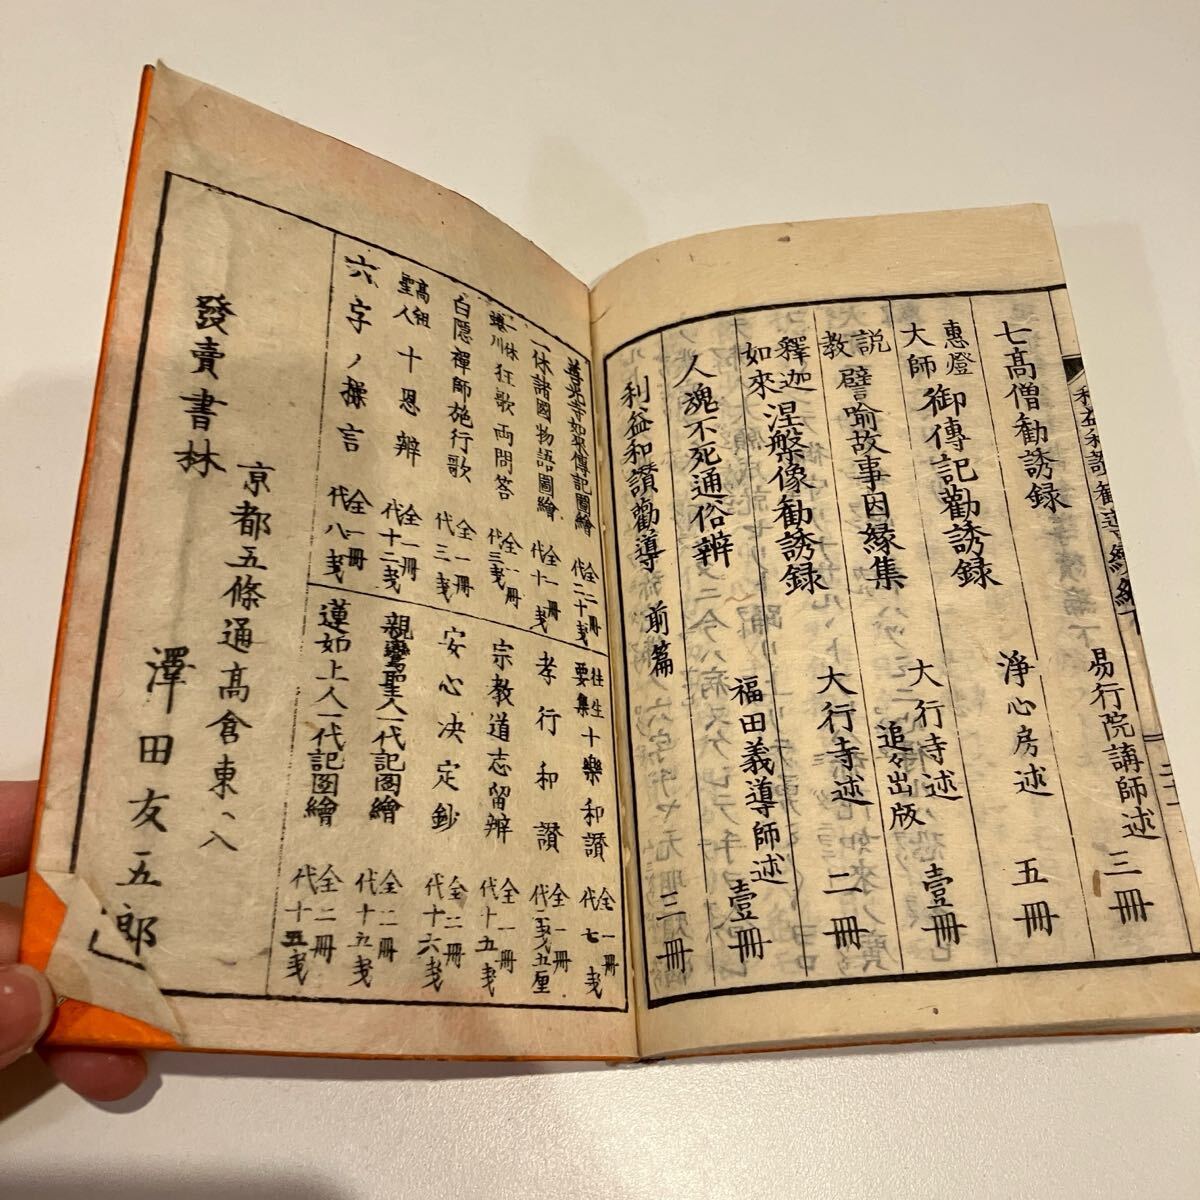 易行院講師述 三冊
七高僧勧誘録 淨心房述 五冊
惠燈大師 御傳記勸誘録 大行寺述 壹冊
追々出版
説教 譬喩故事因縁集 大行寺述 二冊
釋迦如來 涅槃像勧誘録 福田義導師述 壹冊
人魂不死通俗辨
利益和讃勸導 前篇 三冊
善光寺如来傳記圖繪 全二冊 代二十戔
一休諸國物語圖繪 全一冊 代十戔
一休蜷川 狂歌両問答 全一冊 代三戔
白隠禪師施行歌 全一冊 代三戔
高祖聖人 十恩辨 全一冊 代十二戔
六字ノ操言 全一冊 代八戔
往生要集 十樂和讃 全一冊 代七戔
孝行和讃 全一冊 代二戔五厘
宗教道志留辨 全一冊 代十五戔
安心决定鈔 全二冊 代十六戔
親鸞聖人一代記圖繪 全二冊 代十五戔
蓮如上人一代記圖繪 全二冊 代十五戔
發賣書林
京都五條通高倉東ヘ入
澤田友五郎